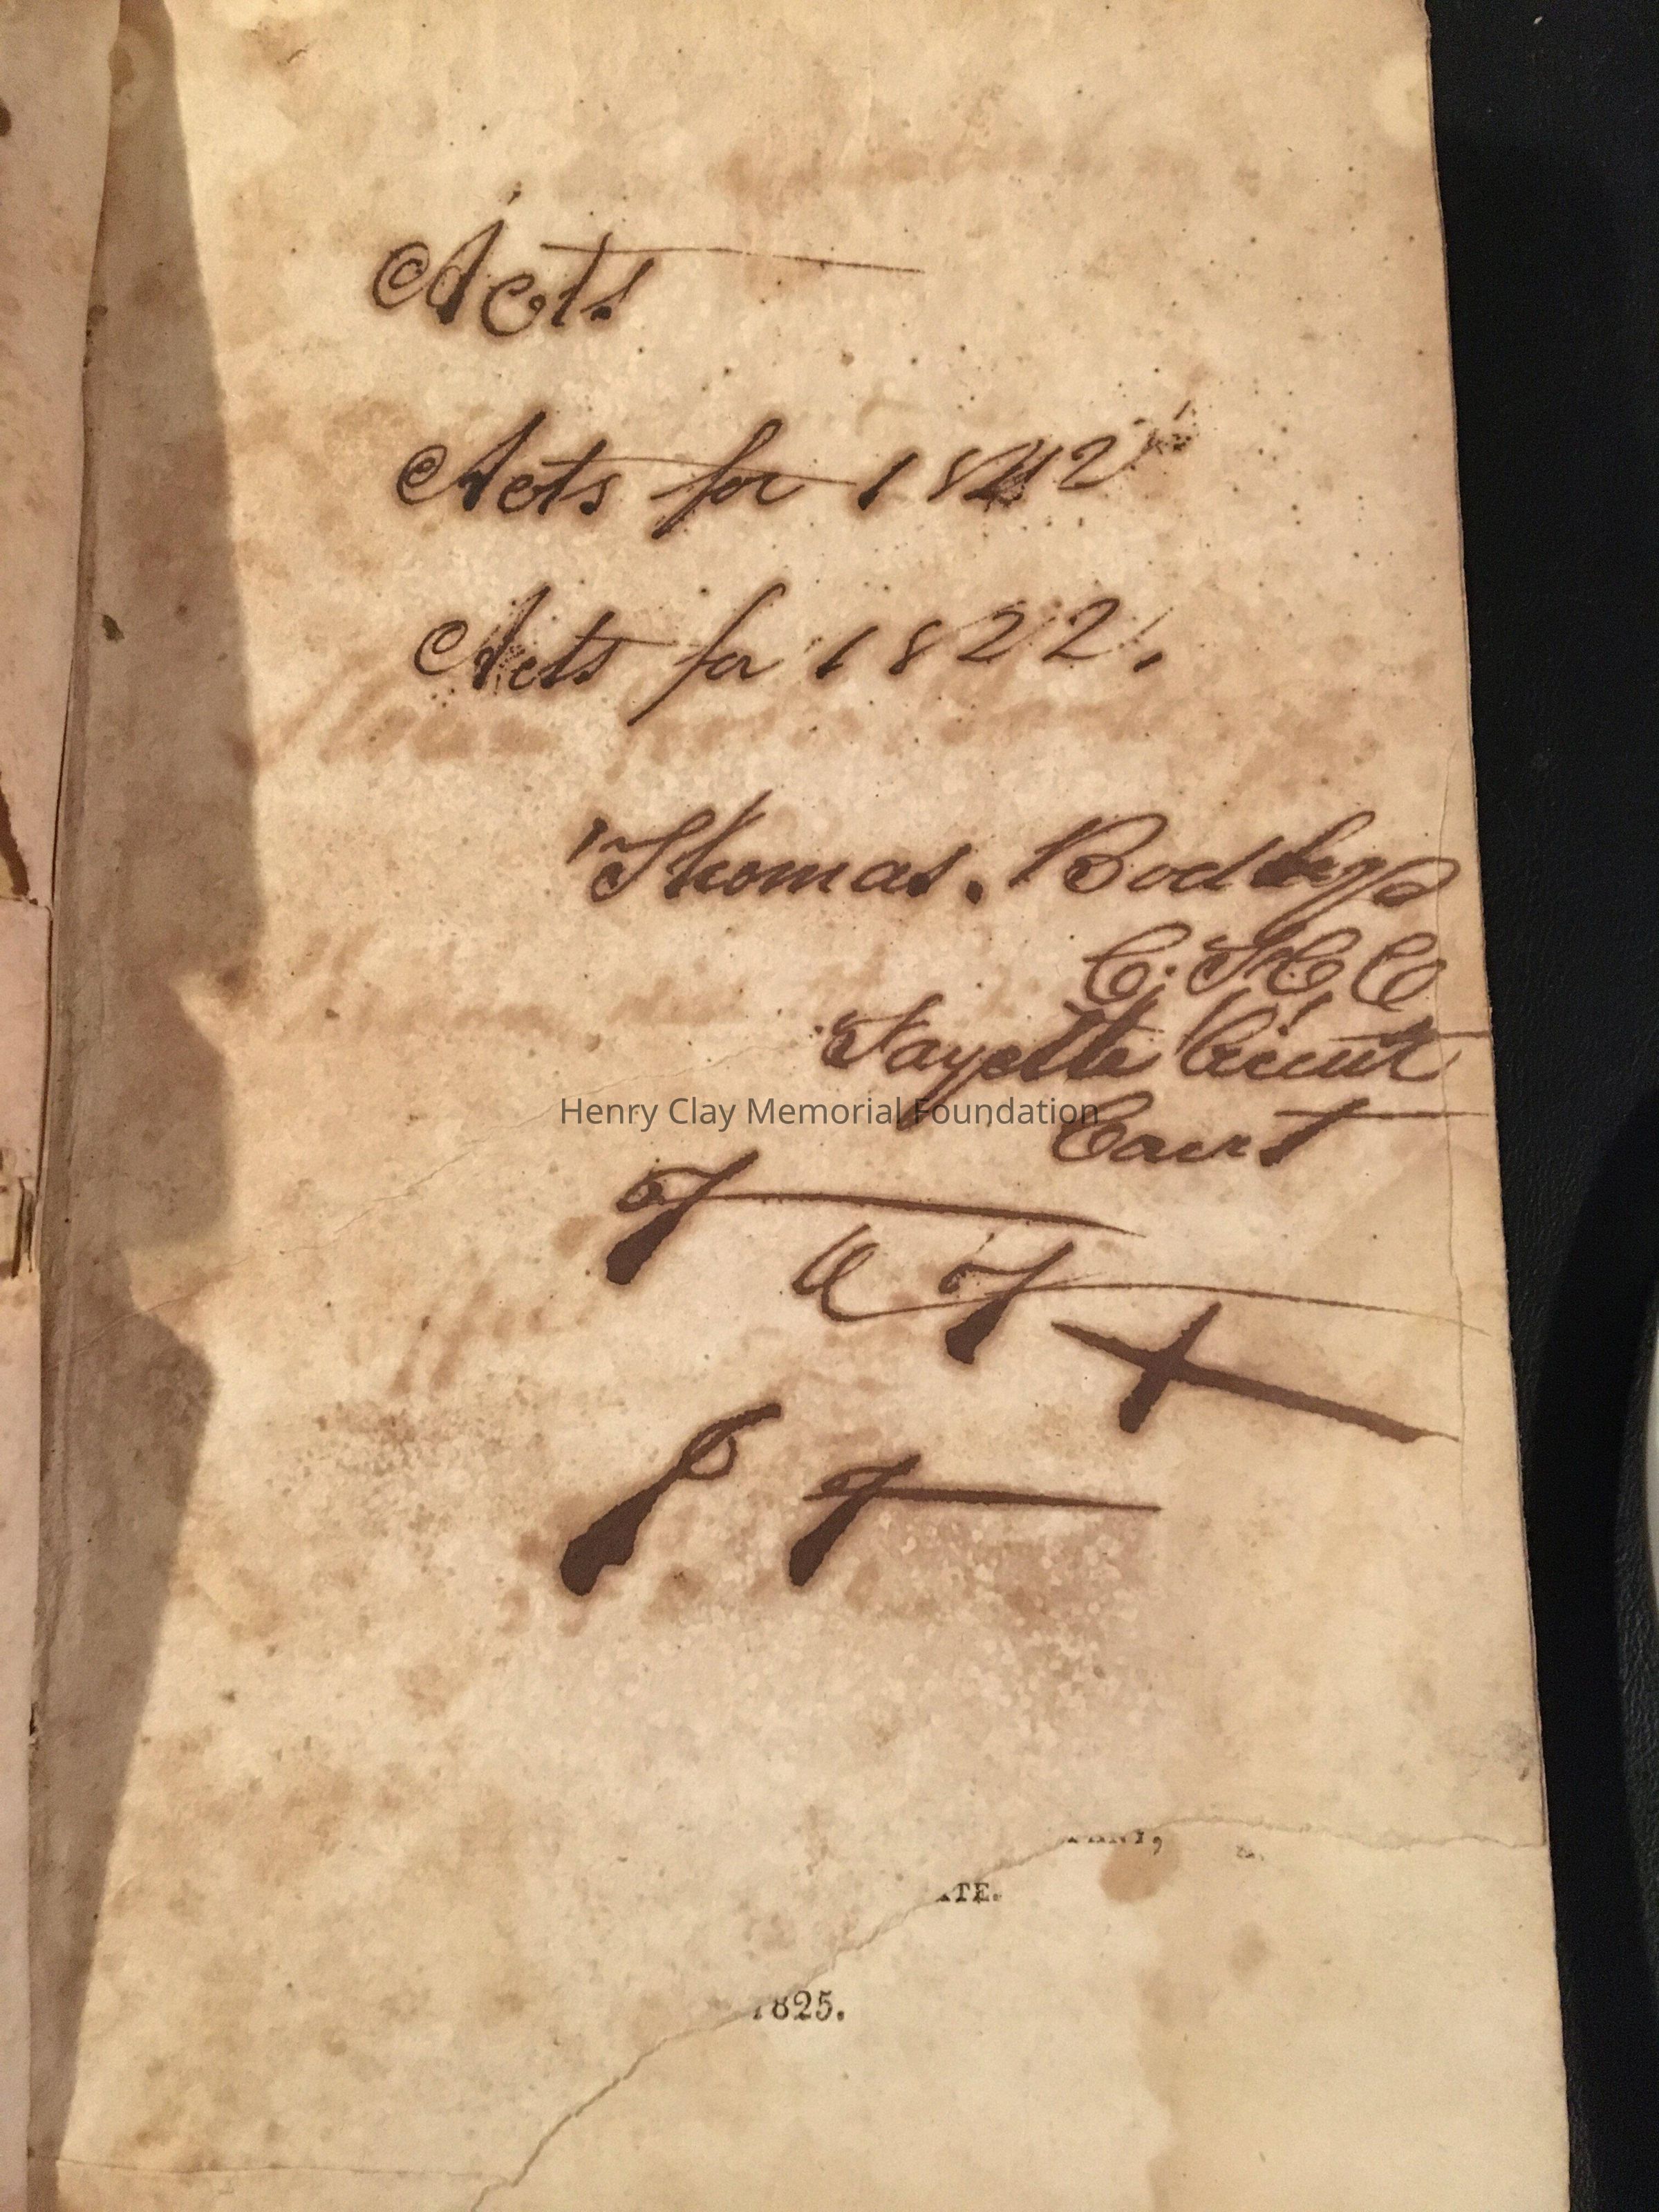 Acts
Acts for 1822
Acts for 1822.
Thomas. Bodley
C. F C C
Fayette Circuit
Court
Henry Clay Memorial Foundation
T
T
T
ATE.
1825.